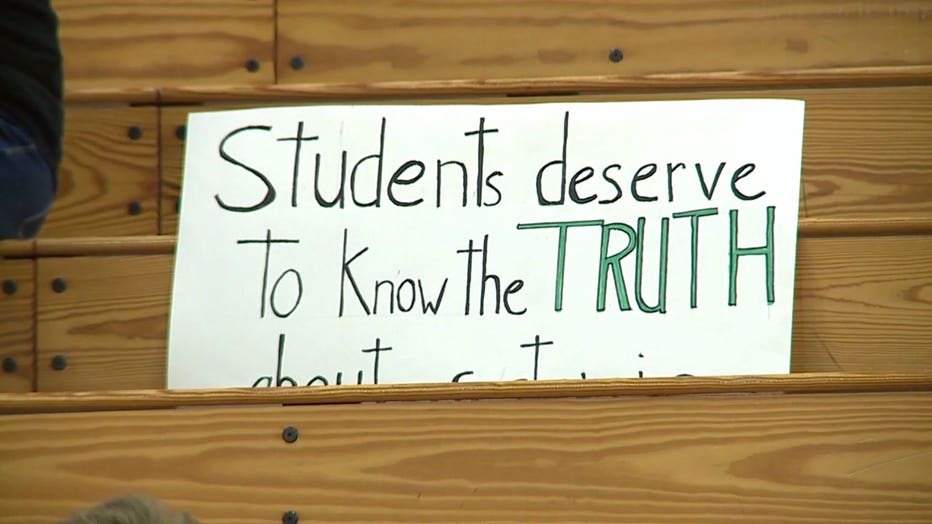 Students deserve
To Know the TRUTH
about